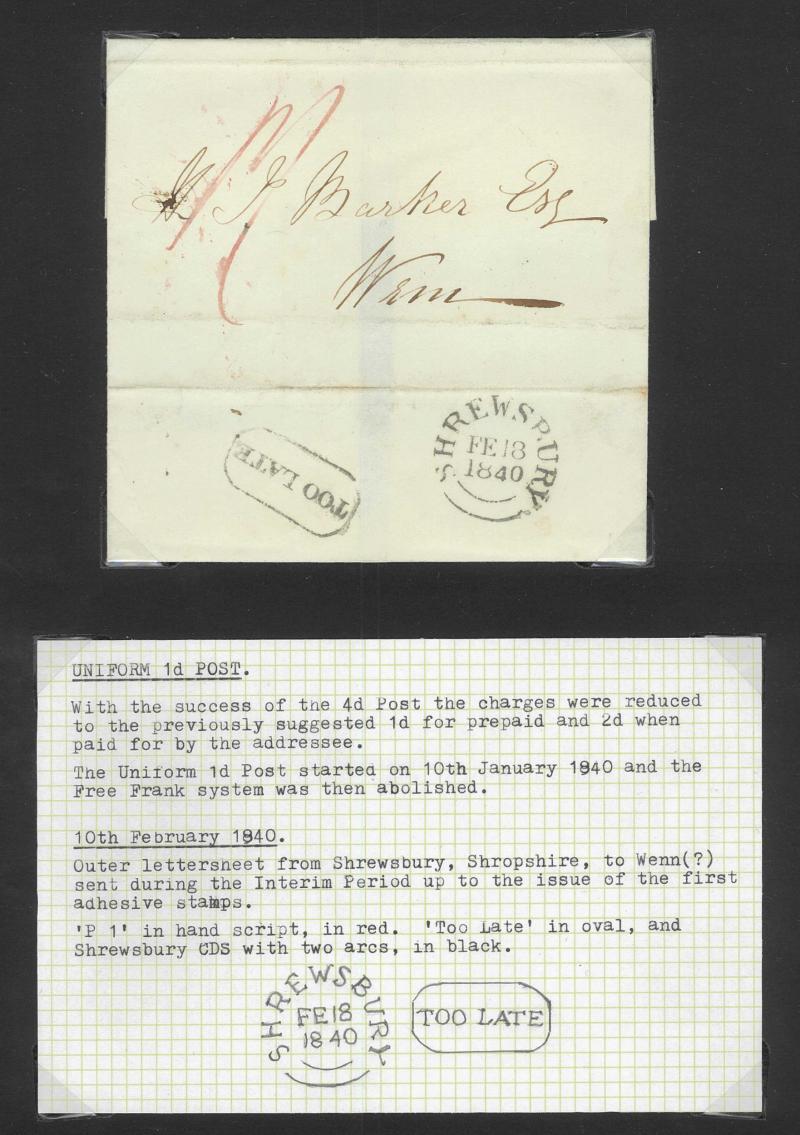 Barker Esq
Wem
TOO LATE
SHREWSBURY
FE 18
1840
UNIFORM 1d POST.
With the success of the 4d Post the charges were reduced
to the previously suggested 1d for prepaid and 2d when
paid for by the addressee.
The Uniform 1d Post started on 10th January 1840 and the
Free Frank system was then abolished.
10th February 1840.
Outer lettersheet from Shrewsbury, Shropshire, to Wenn(?)
sent during the Interim Period up to the issue of the first
adhesive stamps.
'P 1' in hand script, in red. 'Too Late' in oval, and
Shrewsbury CDS with two arcs, in black.
SHREWSBURY
FE 18
1840
TOO LATE